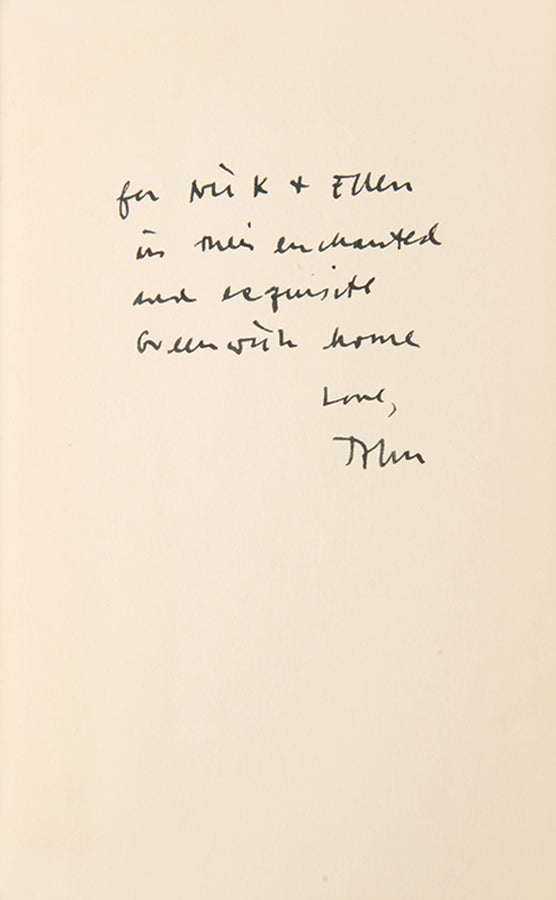 for Nick + Ellen
in their enchanted
and exquisite
Greenwich home
Love,
John